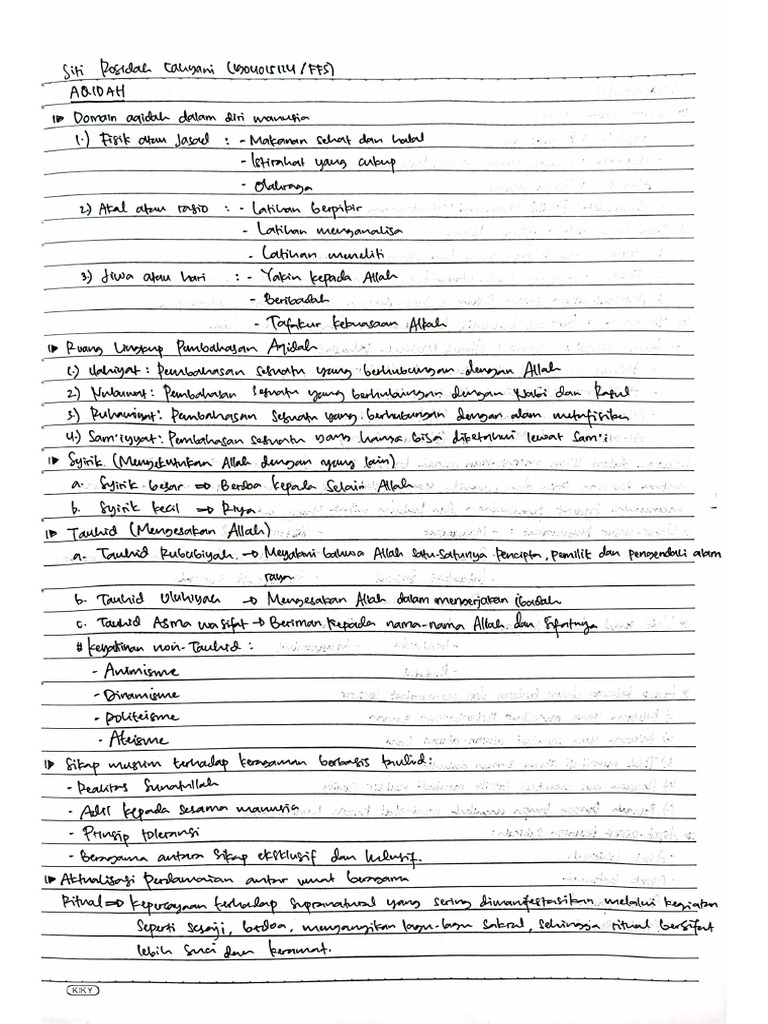 Siti Rosidah Cahyani (/FFS)
AQIDAH
Domain aqidah dalam diri manusia
1.) Fisik atau Jasad : - Makanan sehat dan halal
- Istirahat yang cukup
- Olahraga
2) Akal atau rasio : - Latihan berpikir
- Latihan menganalisa
- Latihan meneliti
3) Jiwa atau hari : - Yakin kepada Allah
- Beribadah
- Tafakur kekuasaan Allah
Ruang Lingkup Pembahasan Aqidah
1.) Ilahiyat : Pembahasan sesuatu yang berhubungan dengan Allah
2) Nubuwat : Pembahasan sesuatu yang berhubungan dengan Nabi dan Rasul
3) Ruhaniyat : Pembahasan sesuatu yang berhubungan dengan alam metafisika
4.) Sam'iyyat : Pembahasan sesuatu yang hanya bisa diketahui lewat Sam'i
Syirik (Menyekutukan Allah dengan yang lain)
a. Syirik besar => Berdoa kepada selain Allah
b. Syirik kecil => Riya
Tauhid (Mengesakan Allah)
a. Tauhid Rububiyah -> Meyakini bahwa Allah satu-satunya pencipta, pemilik dan pengendali alam
raya
b. Tauhid Uluhiyah -> Mengesakan Allah dalam mengerjakan ibadah
c. Tauhid Asma wa sifat -> Beriman kepada nama-nama Allah dan sifatnya
# Keyakinan non-Tauhid :
- Animisme
- Dinamisme
- Politeisme
- Ateisme
Sikap muslim terhadap keragaman berbasis tauhid :
- Realitas Sunatullah
- Adil kepada sesama manusia
- Prinsip toleransi
- Beragama antara sikap eksklusif dan inklusif.
Aktualisasi Perdamaian antar umat beragama
Ritual => Kepercayaan terhadap supranatural yang sering dimanifestasikan melalui kegiatan
seperti sesaji, berdoa, menyanyikan lagu-lagu sakral, sehingga ritual bersifat
lebih suci dan keramat.
KIKY